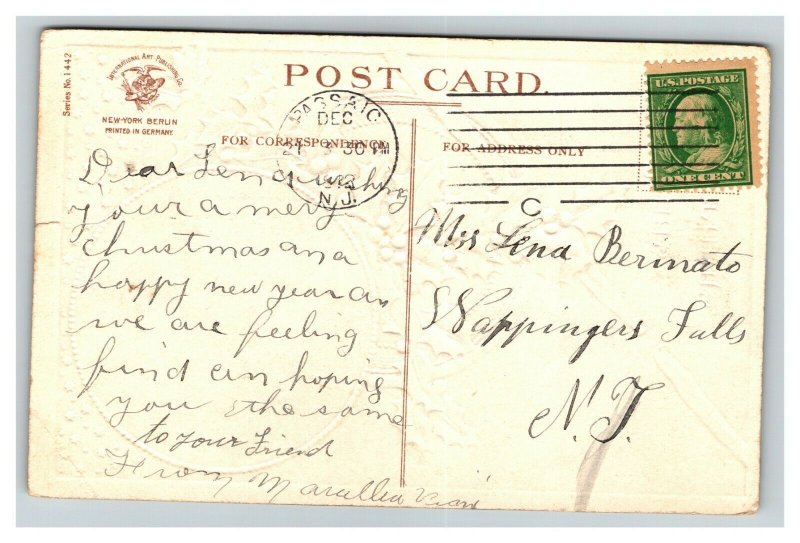 Series No. 1442
INTERNATIONAL ART PUBLISHING CO.
NEW-YORK BERLIN
PRINTED IN GERMANY.
POST CARD.
FOR CORRESPONDENCE
FOR ADDRESS ONLY
PASSAIC
DEC
21
30 PM
N.J.
C
U.S. POSTAGE
ONE CENT
Dear Lena wishing
your a mery
christmas and
happy new year an
we are feeling
find an hoping
you & the same
to your Friend
From
Miss Lena Berinato
Wappingers Falls
N.Y.